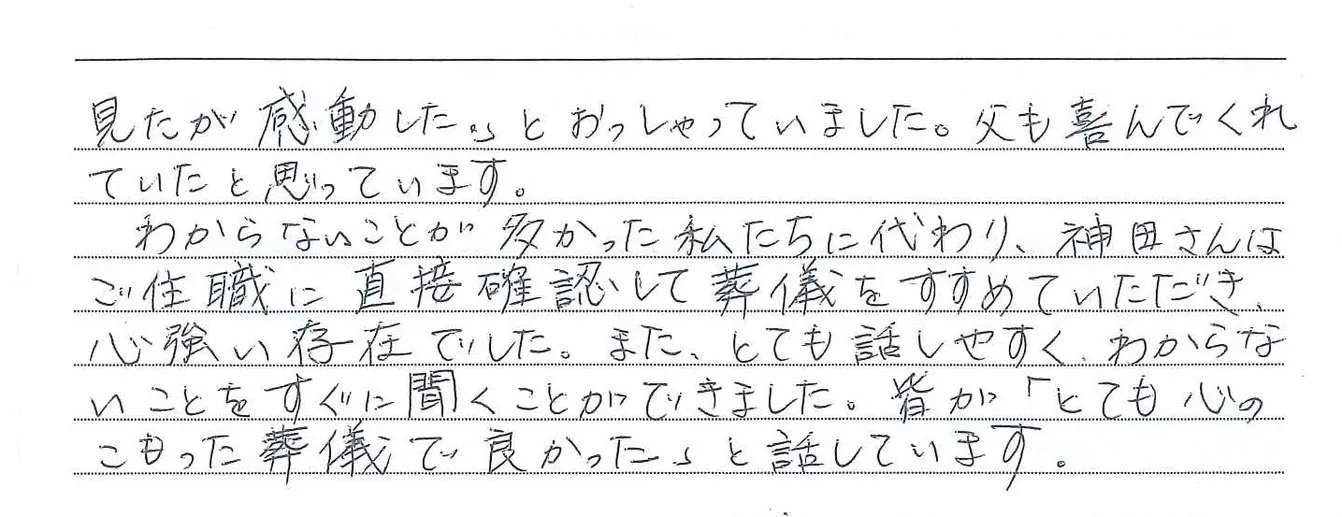 見たが感動した。」とおっしゃっていました。父も喜んでくれ
ていたと思っています。
わからないことが多かった私たちに代わり、神田さんは
ご住職に直接確認して葬儀をすすめていただき、
心強い存在でした。また、とても話しやすく、わからな
いことをすぐに聞くことができました。皆が「とても心の
こもった葬儀で良かった。」と話しています。